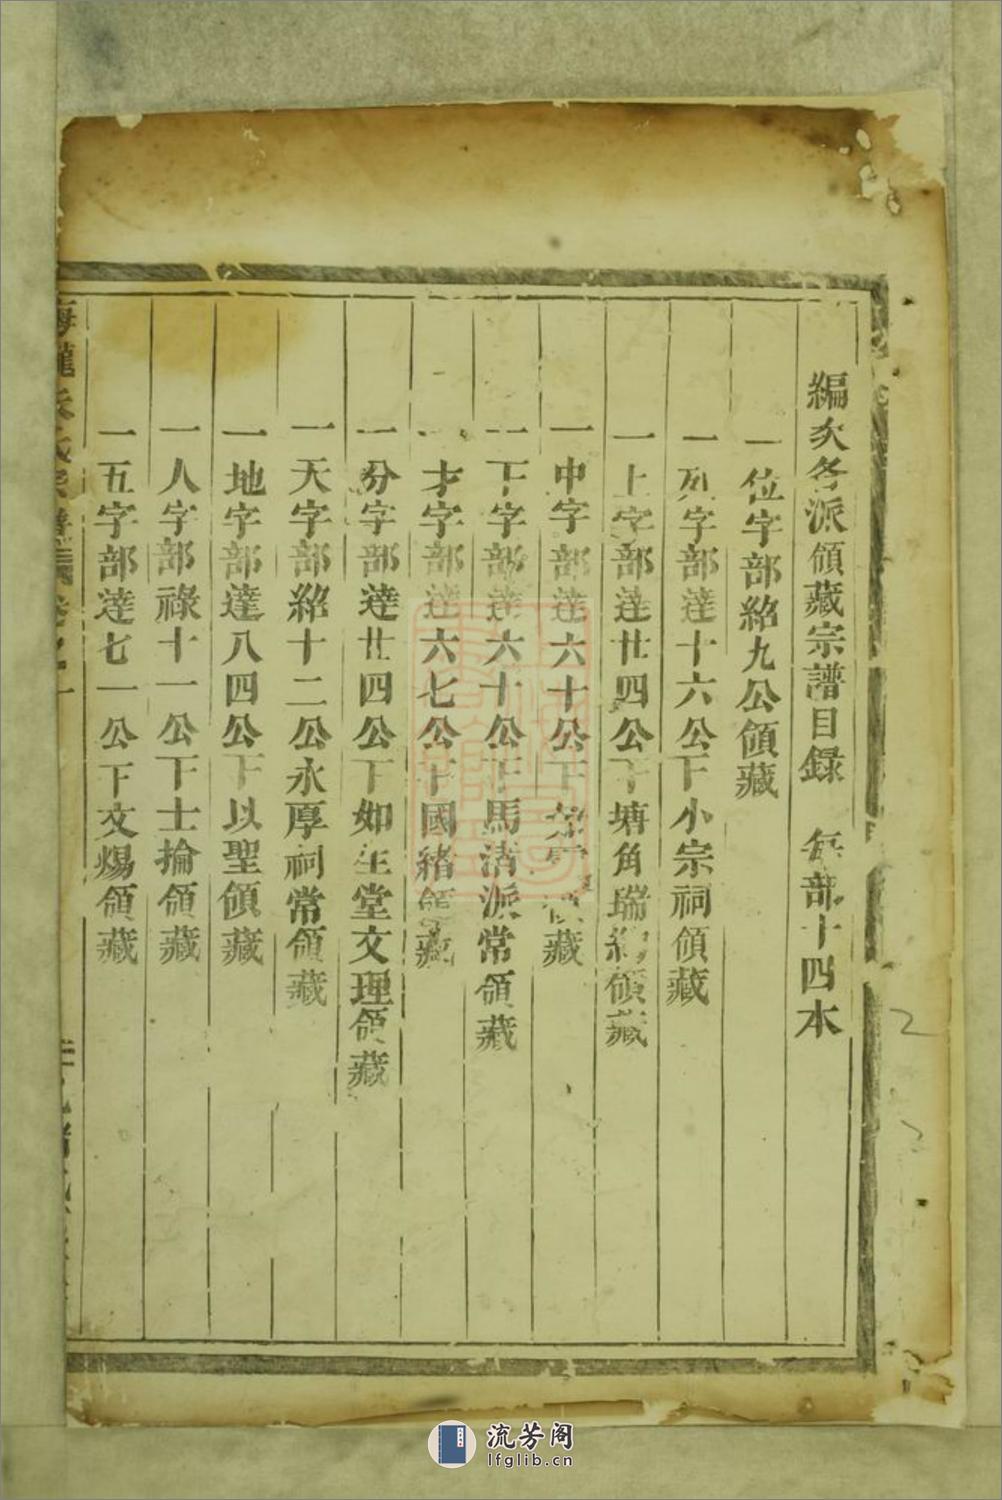 編次各派領藏宗譜目錄 每部十四本
一位字部紹九公領藏
一列字部達十六公下小宗祠領藏
一上字部達廿四公下塘角瑞領藏
一中字部達六十公下領藏
一下字部達六十公下馬渚派常領藏
一才字部達六七公下國緒領藏
一分字部達廿四公下如在堂文理領藏
一天字部紹十二公永厚祠常領藏
一地字部達八四公下以聖領藏
一人字部祿十一公下士掄領藏
一五字部達七一公下文煬領藏
氏宗譜 卷之一
流芳阁
lfglib.cn